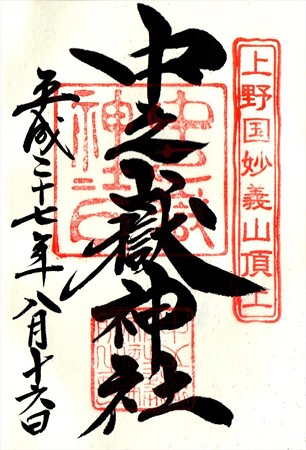 上野国妙義山頂上
中之嶽神社
平成二十七年八月十六日